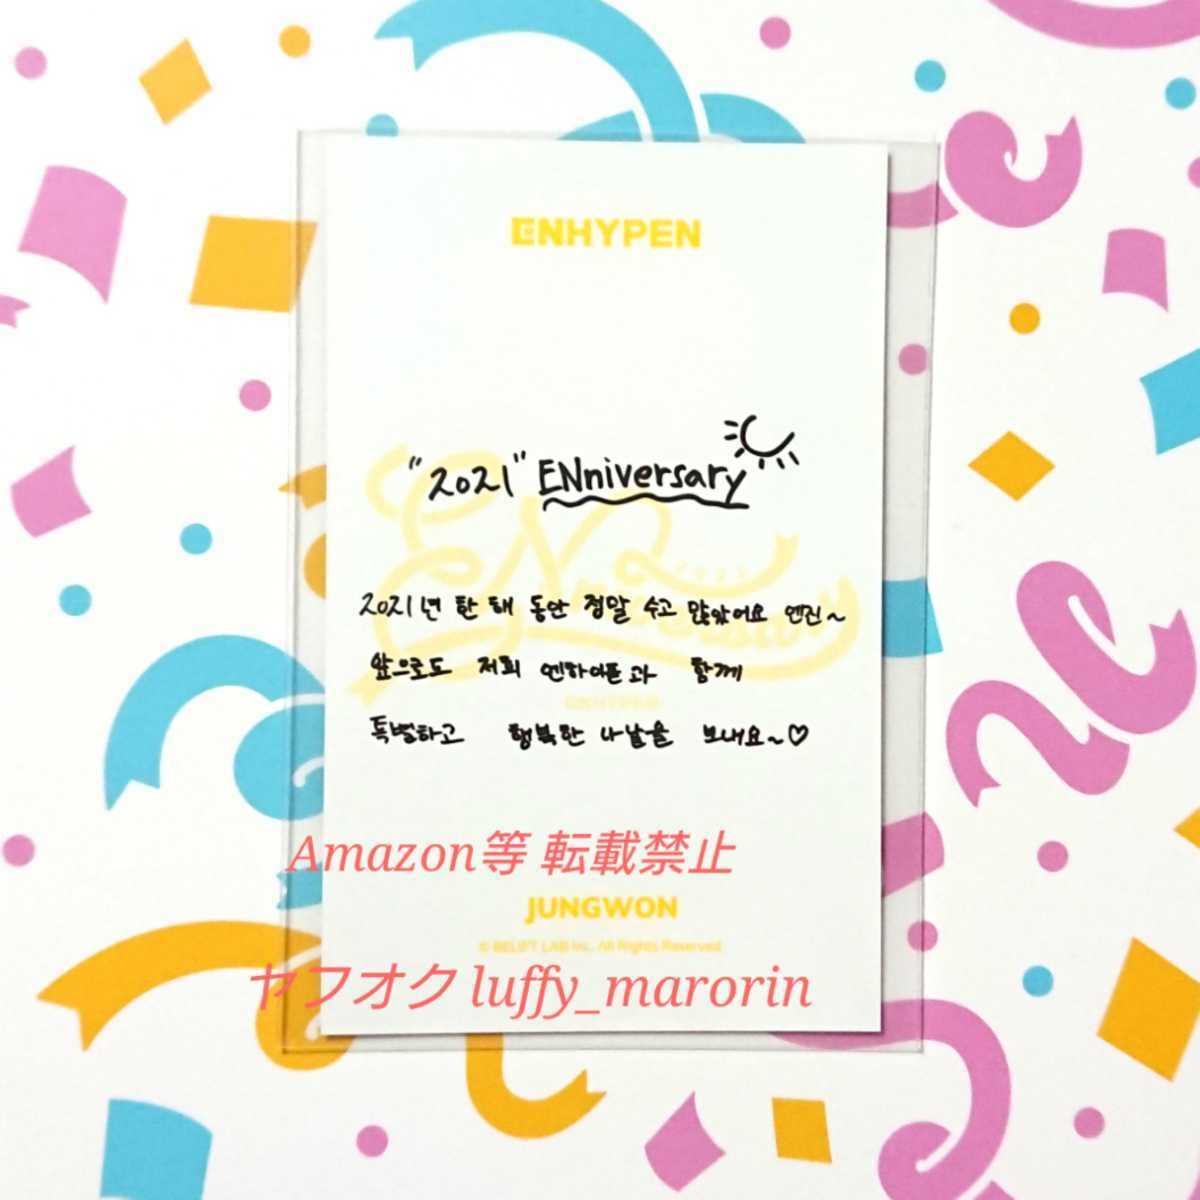 ENHYPEN
"2021" ENniversary
2021년 한 해 동안 정말 수고 많았어요 엔진~
앞으로도 저희 엔하이픈과 함께
특별하고 행복한 나날을 보내요~♡
ENHYPEN
Amazon等 転載禁止
JUNGWON
© BELIFT LAB Inc. All Rights Reserved.
ヤフオク luffy_marorin